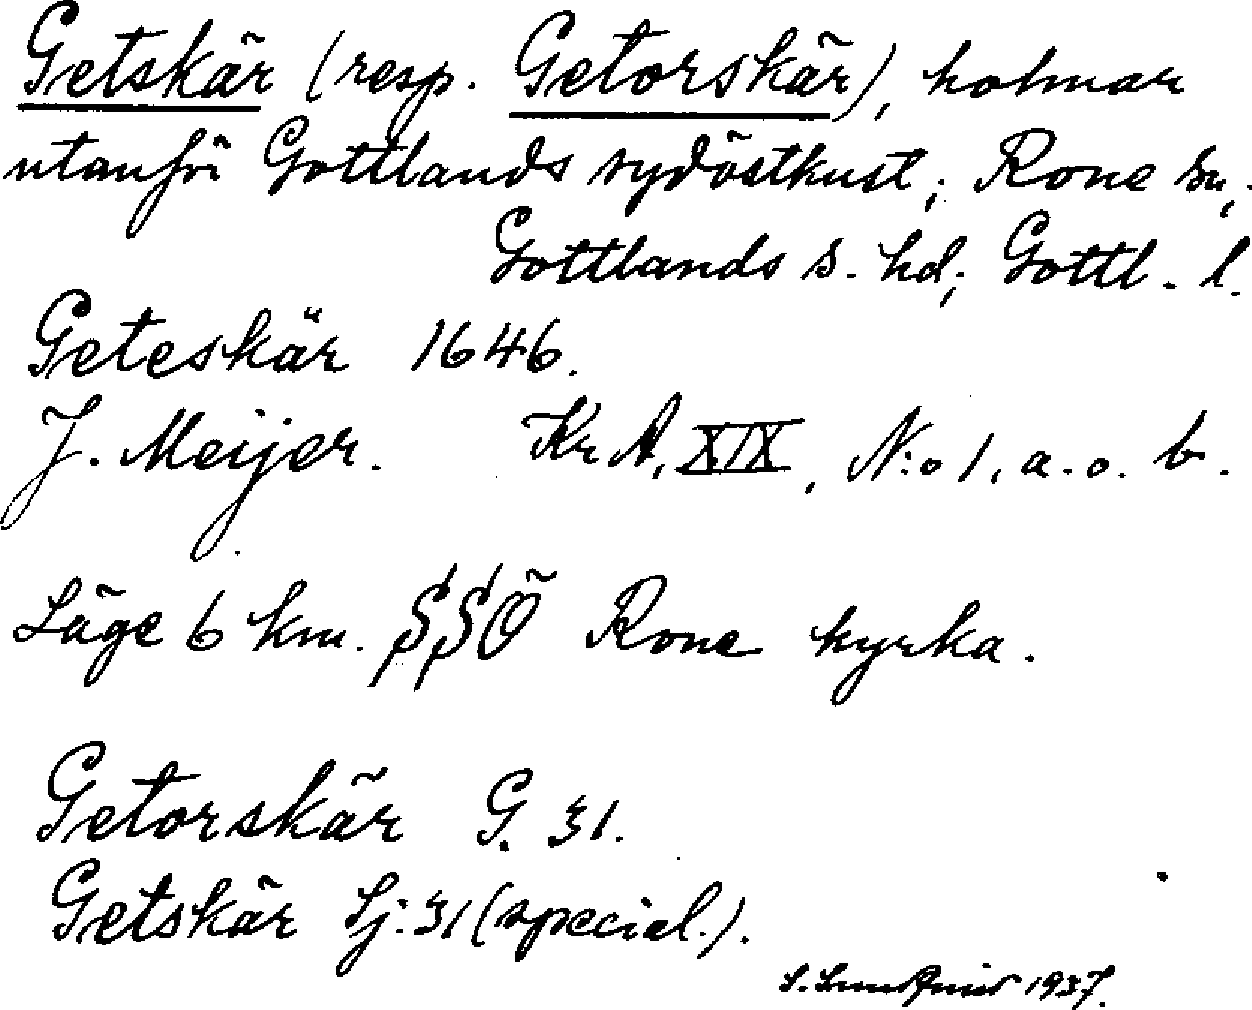 Getskär (resp. Getorskär), holmar
utanför Gottlands sydöstkust; Rone sn,
Gottlands s. hd; Gottl. l.
Geteskär 1646.
J. Meijer. Kr A, XIX, N:o 1, a. o. b.
Läge 6 km. SSÖ Rone kyrka.
Getorskär G. 31.
Getskär Sj: 31 (special.).
S. 1937.